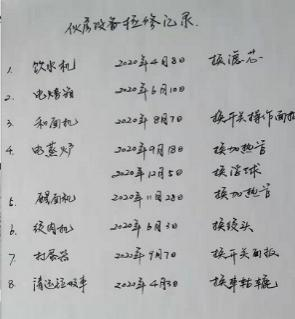 伙房设备检修记录.
1. 饮水机 2020年4月8日 换滤芯
2. 电烤箱 2020年6月10日
3. 和面机 2020年8月7日 换开关操作面板
4. 电蒸炉 2020年9月18日 换加热管
2020年12月5日 换浮球
5. 2020年11月28日 换加热管
6. 绞肉机 2020年6月3日 换绞头
7. 打蛋器 2020年9月7日 换开关面板
8. 清运垃圾车 2020年4月3日 换车轱辘